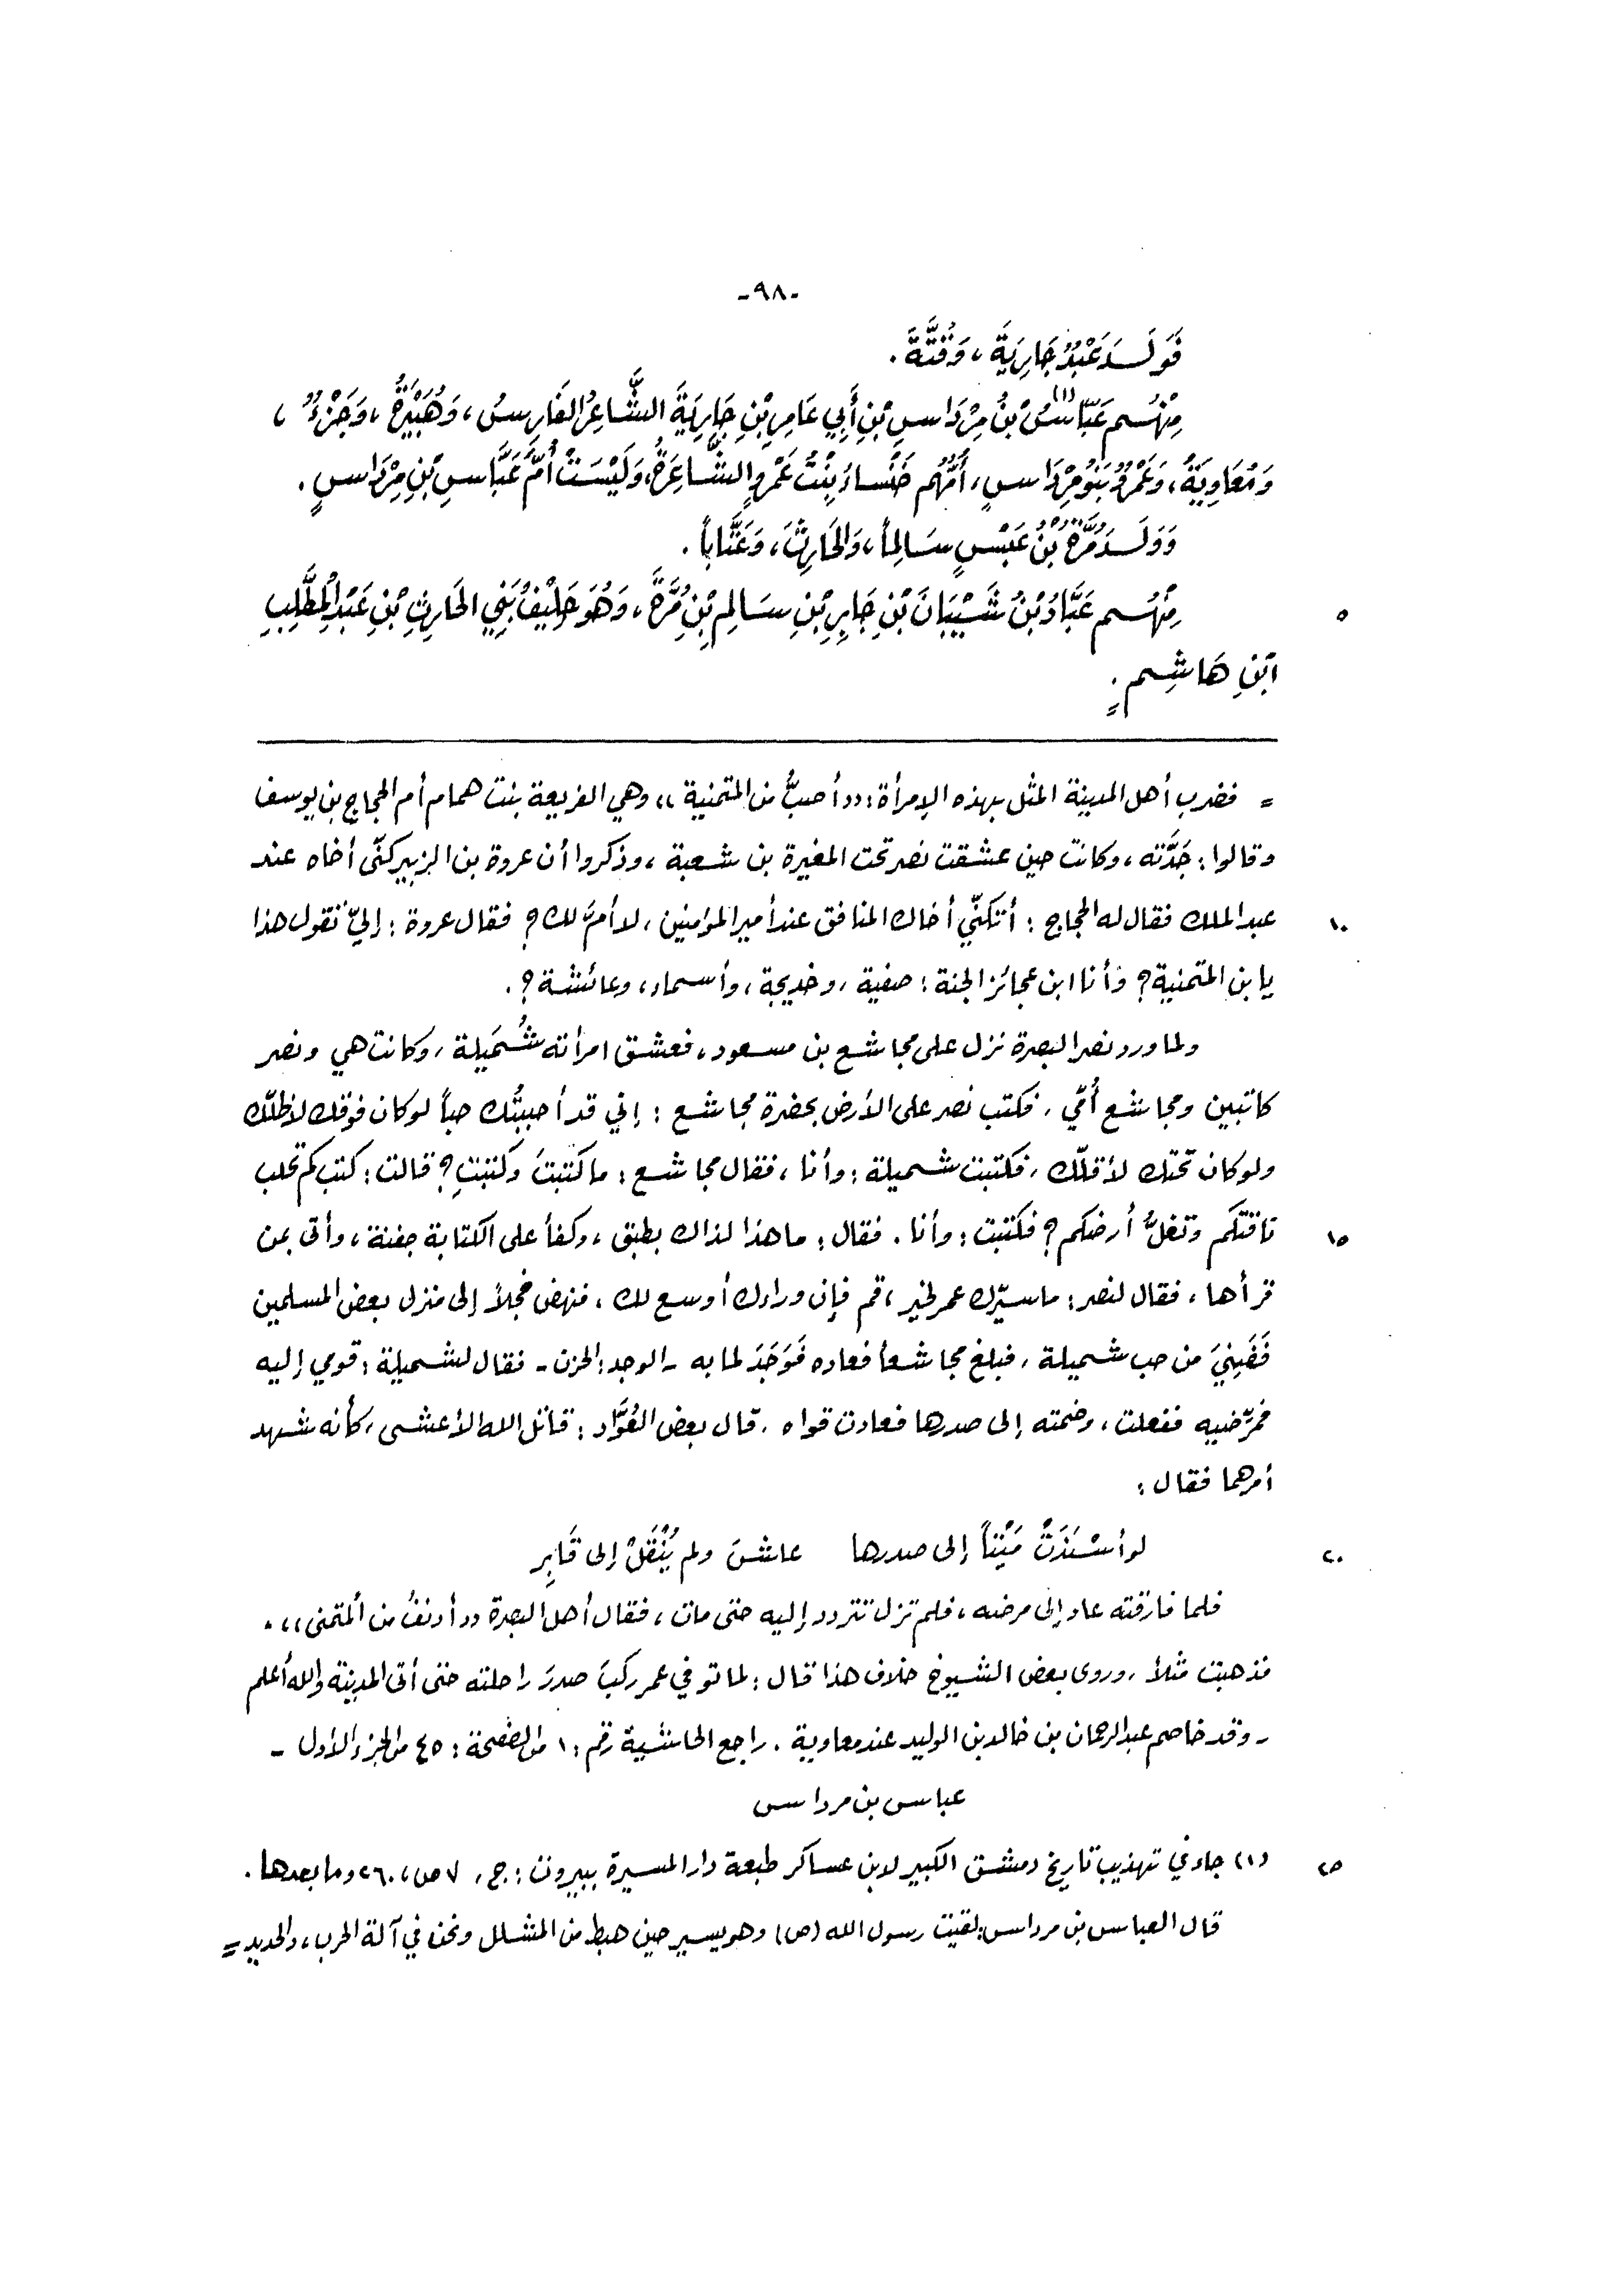 -٩٨-
فَوَلَدَ عَبْدُ جَارِيَةَ، وَقُنَّةَ.
مِنْهُم عَبَّاسُ(١) بْنُ مِرْدَاسِ بْنِ أَبِي عَامِرِ بْنِ جَارِيَةَ الشَّاعِرُ الفَارِسُ، وَهُبَيْرَةُ، وَجَزْءٌ،
وَمُعَاوِيَةُ، وَعَمْرٌو بَنُو مِرْدَاسٍ، أُمُّهُم خَنْسَاءُ بِنْتُ عَمْرٍو الشَّاعِرَةُ، وَلَيْسَتْ أُمَّ عَبَّاسِ بْنِ مِرْدَاسٍ.
وَوَلَدَ مُرَّةُ بْنُ عَبْسٍ سَالِماً، وَالحَارِثَ، وَعَتَّاباً.
مِنْهُم عَبَّادُ بْنُ شَيْبَانَ بْنِ جَابِرِ بْنِ سَالِمِ بْنِ مُرَّةَ، وَهُوَ حَلِيْفُ بَنِي الحَارِثِ بْنِ عَبْدِ الْمُطَّلِبِ ٥
ابْنِ هَاشِمٍ.
= فضرب أهل المدينة المثل بهذه الإمرأة: ((أصبُّ من المتمنية)) وهي الفريعة بنت همام أم الحجاج بن يوسف
وقالوا: جَدَّته، وكانت حين عشقت نصر تحت المغيرة بن شعبة، وذكروا أن عروة بن الزبير كنّى أخاه عند
عبد الملك فقال له الحجاج: أتكنّي أخاك المنافق عند أمير المؤمنين، لا أمَّ لك؟ فقال عروة: إليّ تقول هذا ١٠
يا بن المتمنية؟ وأنا ابن عجائز الجنة: صفية، وخديجة، وأسماء، وعائشة؟.
ولما ورد نصر البصرة نزل على مجاشع بن مسعود، فعشق امرأته شُمَيلة، وكانت هي ونصر
كاتبين ومجاشع أُمِّي، فكتب نصر على الأرض بحضرة مجاشع: إني قد أحببتُك حباً لو كان فوقك لأظلّك
ولو كان تحتك لأقلّك، فكتبت شميلة: وأنا، فقال مجاشع: ما كتبتَ وكتبتِ؟ قالت: كتب كم تحلب
ناقتكم وتغلُّ أرضكم؟ فكتبت: وأنا. فقال: ما هذا لذاك بطبق، وكفأ على الكتابة جفنة، وأتى بمن ١٥
قرأها، فقال لنصر: ما سيّرك عمر لخير، قم فإن وراءك أوسع لك، فنهض خجلاً إلى منزل بعض المسلمين
فَضَنِيَ من حب شميلة، فبلغ مجاشعاً فعاده فَوَجَدَ لما به -الوجد: الحزن- فقال لشميلة: قومي إليه
فمرّضيه ففعلت، وضمته إلى صدرها فعادت قواه، قال بعض العُوَّاد: قاتل الله الأعشى، كأنه شهد
أمرهما فقال:
لو أسْنَدَتْ مَيْتاً إلى صدرها عاشَ ولم يُنْقَلْ إلى قَابِرِ ٢٠
فلما فارقته عاد إلى مرضه، فلم تزل تتردد إليه حتى مات، فقال أهل البصرة ((أدنفُ من ألمتمنى)).
فذهبت مثلاً، وروى بعض الشيوخ خلاف هذا قال: لما توفي عمر ركبَ صدرَ راحلته حتى أتى المدينة والله أعلم
- وقد خاصم عبد الرحمان بن خالد بن الوليد عند معاوية. راجع الحاشية رقم: ١ من الصفحة: ٤٥ من الجزء الأول -
عباس بن مرداس
(١) جاء في تهذيب تاريخ دمشق الكبير لابن عساكر طبعة دار المسيرة ببيروت: ج، ٧ ص، ٢٦٠ وما بعدها. ٢٥
قال العباس بن مرداس: لقيت رسول الله (ص) وهو يسير حين هبط من المشلل ونحن في آلة الحرب، والحديد =